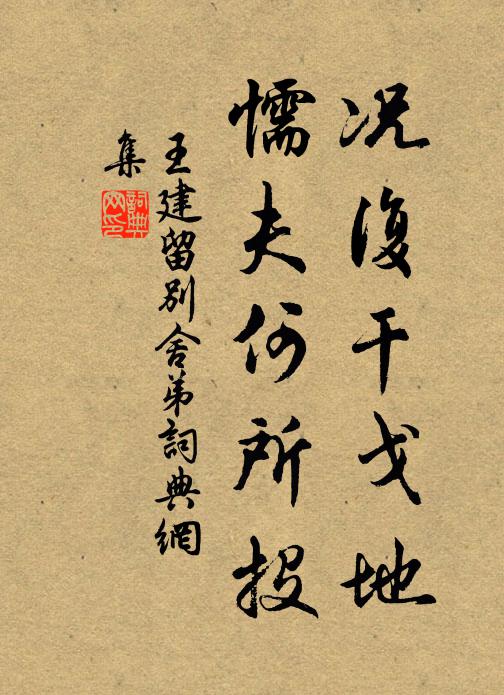 况復干戈地
懦夫何所投
王建留別舍弟詞典網
集
詞典
网印